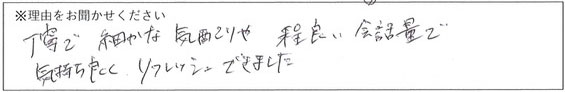 ※理由をお聞かせください
丁寧で 細かな 気配りや 程良い 会話量で
気持ち良く リフレッシュできました